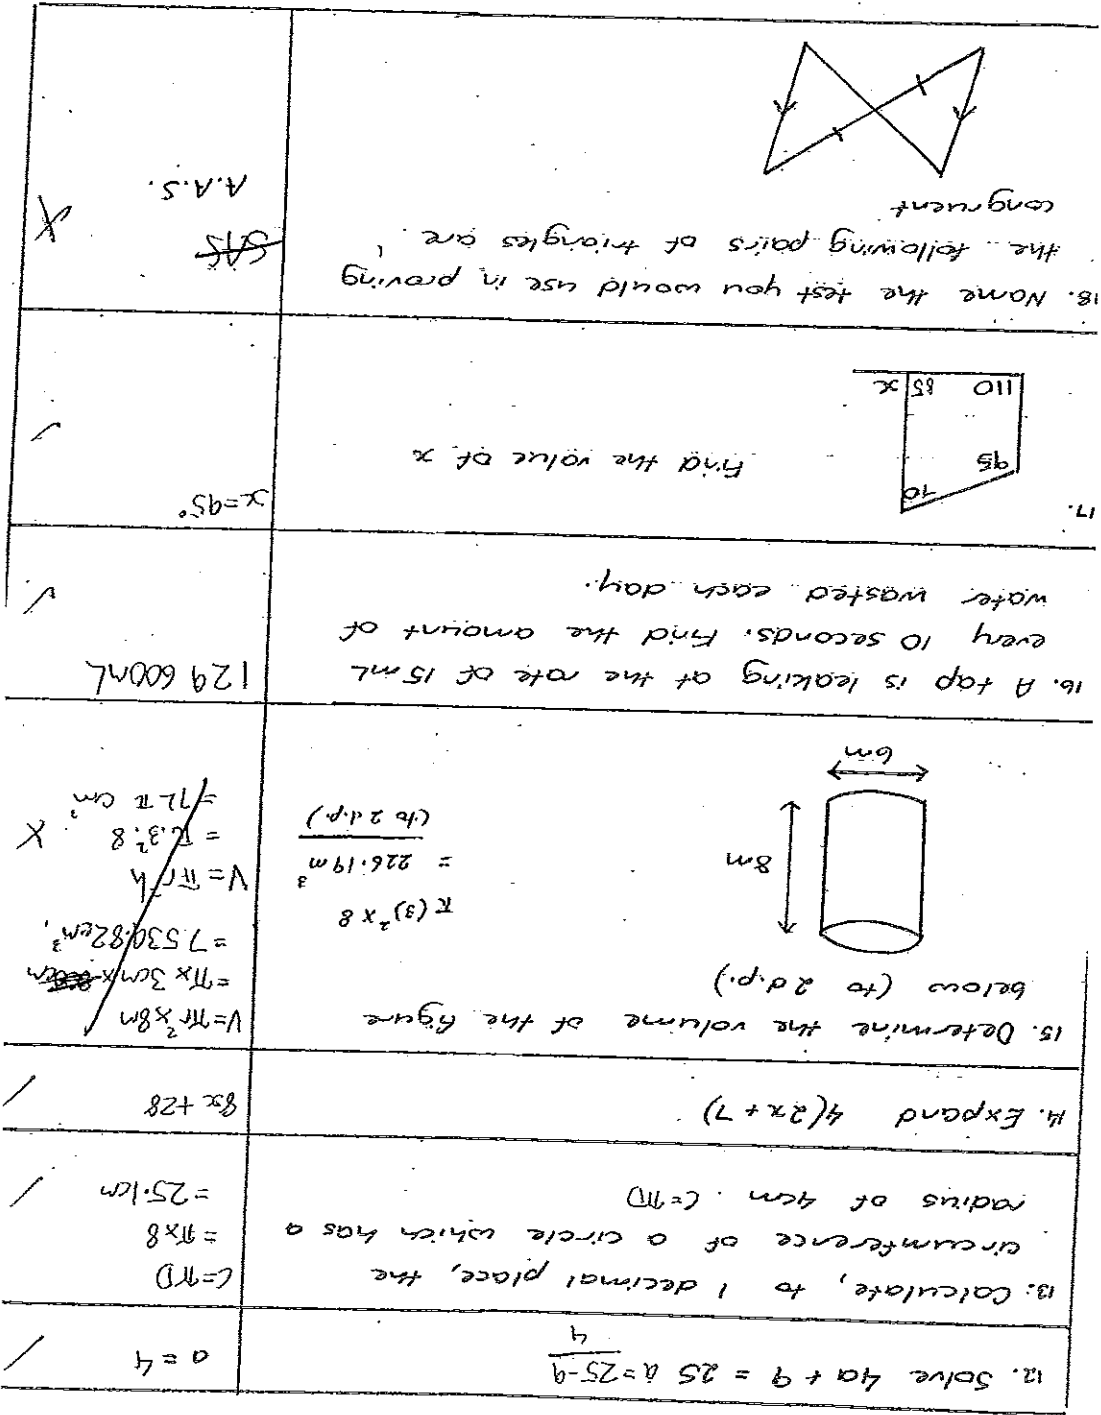 12. Solve 4a + 9 = 25 a = 25-9
4
a = 4
13. Calculate, to 1 decimal place, the
circumference of a circle which has a
radius of 4cm. C=πD
C=πD
=π×8
=25.1cm
14. Expand 4(2x + 7)
8x+28
15. Determine the volume of the figure
below (to 2 d.p.)
8m
6m
π(3)²×8
= 226.19m³
(to 2 d.p.)
V=πr²×8m
=π×3cm×
=7.530.82cm³
V=πr²h
=π.3².8
=72π cm³
X
16. A tap is leaking at the rate of 15mL
every 10 seconds. Find the amount of
water wasted each day.
129 600mL
17.
70
95
110 85 x
Find the value of x
x=95°
18. Name the test you would use in proving
the following pairs of triangles are
congruent
SAS
A.A.S.
X